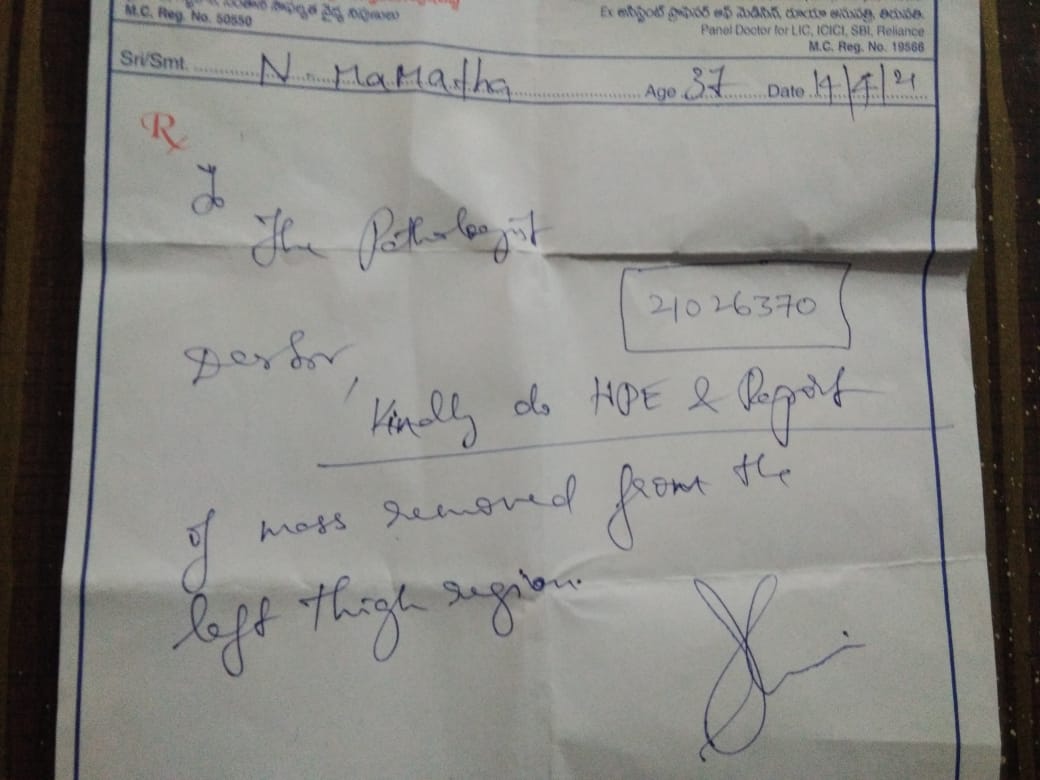 M.C. Reg. No. 50550
Ex అసిస్టెంట్ ప్రొఫెసర్ ఆఫ్ మెడిసిన్, రుయా ఆసుపత్రి, తిరుపతి.
Panel Doctor for LIC, ICICI, SBI, Reliance
M.C. Reg. No. 19566
Sri/Smt. N. Mamatha Age 37 Date 14/4/21
Rx
To
The Pathologist
21026370
Dear Sir,
Kindly do HPE & Report
of mass removed from the
left thigh region.